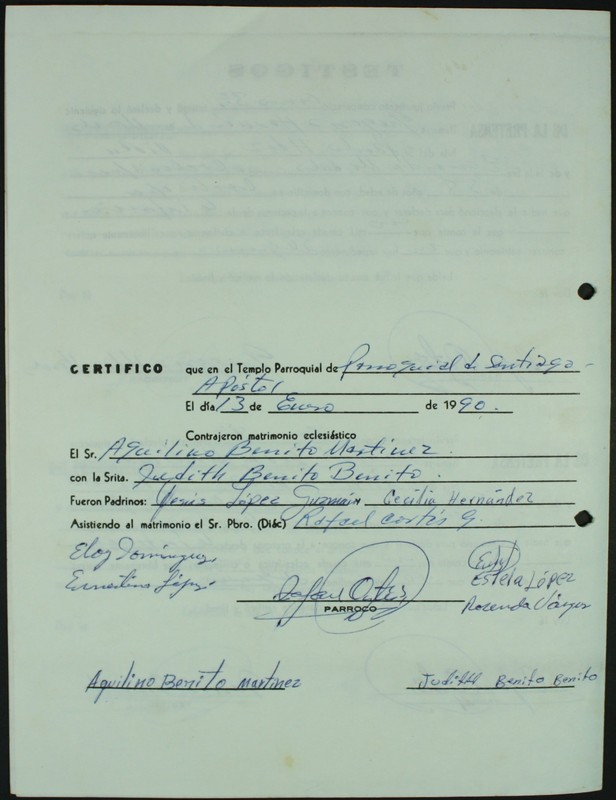 CERTIFICO que en el Templo Parroquial de Parroquial de Santiago
Apóstol
El día 13 de Enero de 1990.
Contrajeron matrimonio eclesiástico
El Sr. Aquilino Benito Martínez.
con la Srita. Judith Benito Benito.
Fueron Padrinos: Jesús López Guzmán Cecilia Hernández
Asistiendo al matrimonio el Sr. Pbro. (Diác) Rafael Cortés G.
Eloy Domínguez
Ernestina López
Estela López
Rosenda
PARROCO
Aquilino Benito Martinez
Judith Benito Benito